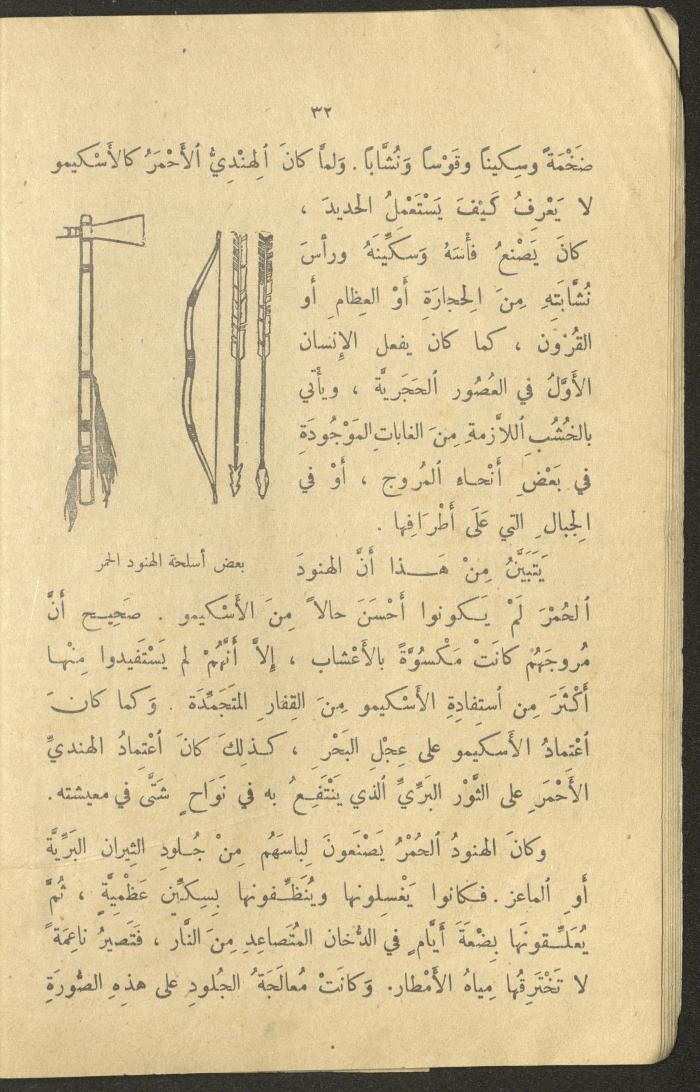 ٣٢
ضَخْمَةً وسِكيناً وقَوْساً وَنُشَّاباً . وَلمَّا كانَ ٱلهِنْدِيُّ ٱلأَحْمَرُ كالأَسْكيمو
لا يَعْرِفُ كَيْفَ يَسْتَعْمِلُ الحديدَ ،
كانَ يَصْنعُ فأْسَهُ وَسكِّينَهُ ورأْسَ
نُشَّابَتِهِ مِنَ الِحجارَةِ أَوْ العِظامِ أَو
القُرُون ، كما كان يفعل الإِنسان
الأَوَّلُ في العُصُور ٱلحَجَرِيَّة ، ويأْتي
بالخُشُبِ ٱللاَّزمةِ مِنَ الغاباتِ المَوْجُودَةِ
في بَعْضِ أَنْحاءِ ٱلمُروجِ ، أَوْ في
الِجبالِ التي عَلَى أَطْرَافِها .
بعض أسلحة الهنود الحمر
يَتَبَيَّنُ مِنْ هَـذا أَنَّ الهنودَ
ٱلحُمْرَ لَمْ يَـكونوا أَحْسَنَ حالاً مِنَ الأَسْكيمو . صَحِيـح أَنَّ
مُروجَهُم كانَتْ مَكْسوَّةً بالأَعْشاب ، إِلاَّ أَنَّهُمْ لم يَسْتَفيدوا مِنْهـا
أَكْثَرَ مِن ٱستِفادِةِ الأَسْكيمو مِنَ القِفارِ المتَجَمِّدَة . وَكما كانَ
ٱعْتمادُ الأَسكيمو على عِجْلِ البَحْرِ ، كـذلِكَ كانَ ٱعْتِمادُ الهنديِّ
الأَحْمَرِ على الثَّوْر البَرِّيِّ ٱلذي يَنْتَفِـعُ به في نَوَاحٍ شَتَّى في معيشته.
وكانَ الهنودُ ٱلحُمْرُ يَصْنَعونَ لِباسَهُم مِنْ جُـلودِ الثِيران البَرِّيَّة
أَوِ ٱلماعز . فـكانوا يَغْسِلونها ويُنَظِّـفونها بِسِـكِّينٍ عَظْمِيَّةٍ ، ثُمَّ
يُعَلِّـقونَها بِضْعَةَ أَيَّامٍ في الدُّخان المُتَصاعِدِ مِنَ النَّار ، فَتَصيرُ ناعِمَةً
لا تَخْتَرِقُها مِياهُ الأَمْطار. وَكانَتْ مُعالَجَةُ الجُلودِ على هذِهِ الصُّورَةِ